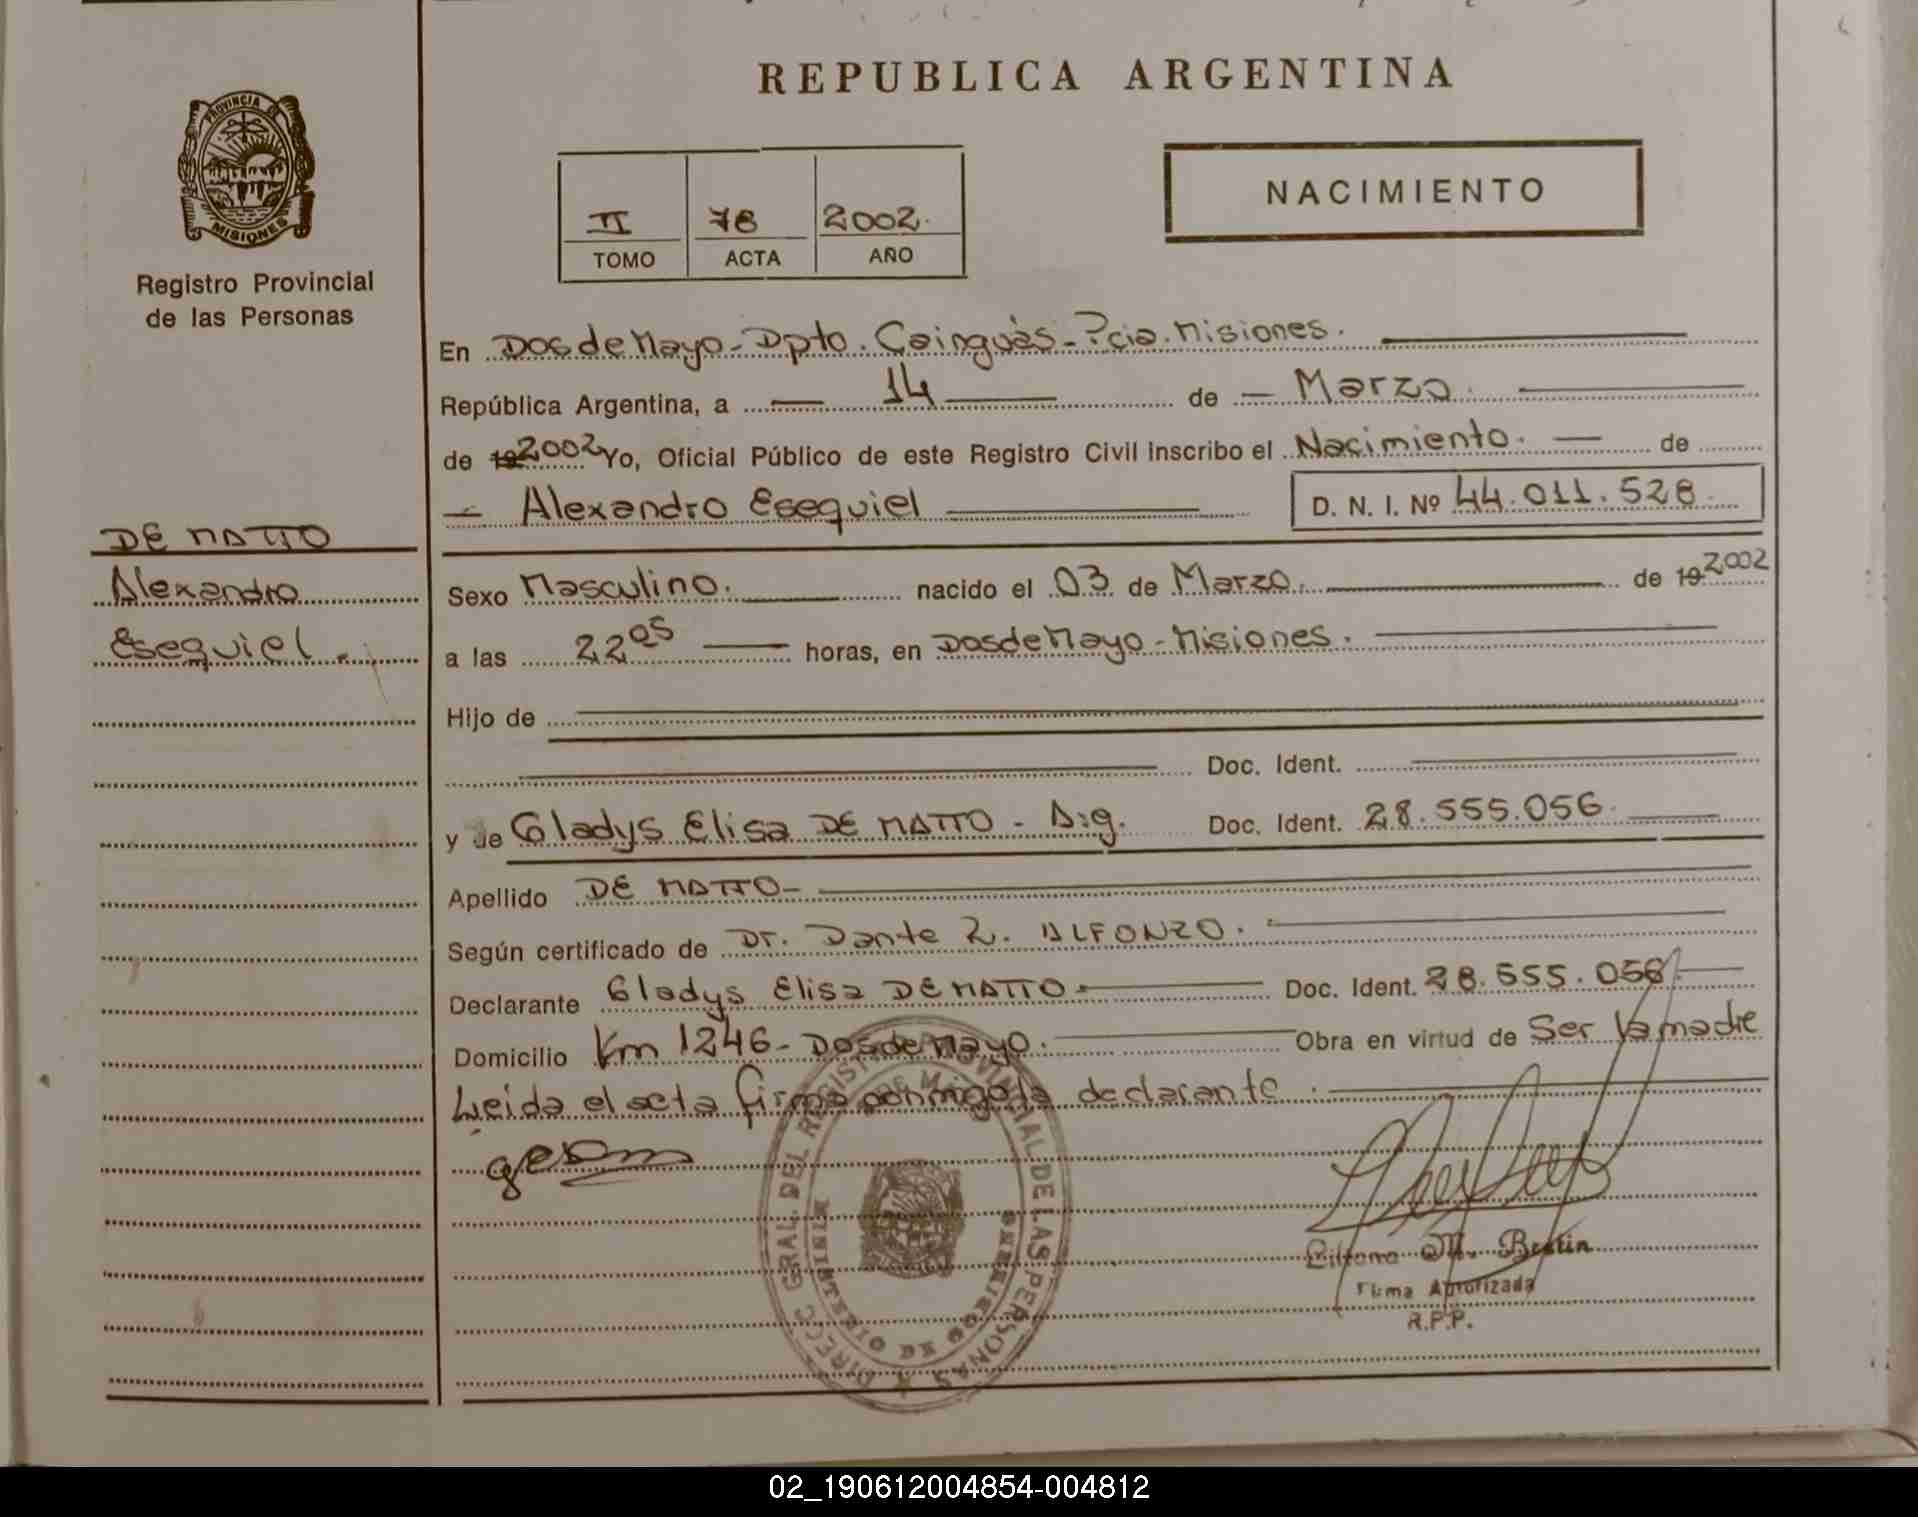 REPUBLICA ARGENTINA
PROVINCIA DE
MISIONES
Registro Provincial
de las Personas
II 78 2002.
TOMO ACTA AÑO
NACIMIENTO
En Dos de Mayo - Dpto. Cainguàs - Pcia. Misiones.
República Argentina, a 14 de Marzo.
de 19 2002 Yo, Oficial Público de este Registro Civil inscribo el Nacimiento. de
Alexandro Esequiel D. N. I. Nº 44.011.528.
DE MATTO
Alexandro
Esequiel.
Sexo Masculino. nacido el 03 de Marzo. de 19 2002
a las 22 05 horas, en Dos de Mayo - Misiones.
Hijo de
Doc. Ident.
y de Gladys Elisa DE MATTO - Arg. Doc. Ident. 28.555.056
Apellido DE MATTO -
Según certificado de Dr. Dante R. ALFONZO.
Declarante Gladys Elisa DE MATTO - Doc. Ident. 28.555.056
Domicilio Km 1246 - Dos de Mayo. Obra en virtud de Ser la madre
Leida el acta firma conmigo la declarante.
DIRECC. GRAL. DEL REGISTRO PROVINCIAL DE LAS PERSONAS
MINISTERIO DE GOBIERNO
M. Bestin
Firma Autorizada
R.P.P.
02_190612004854-004812